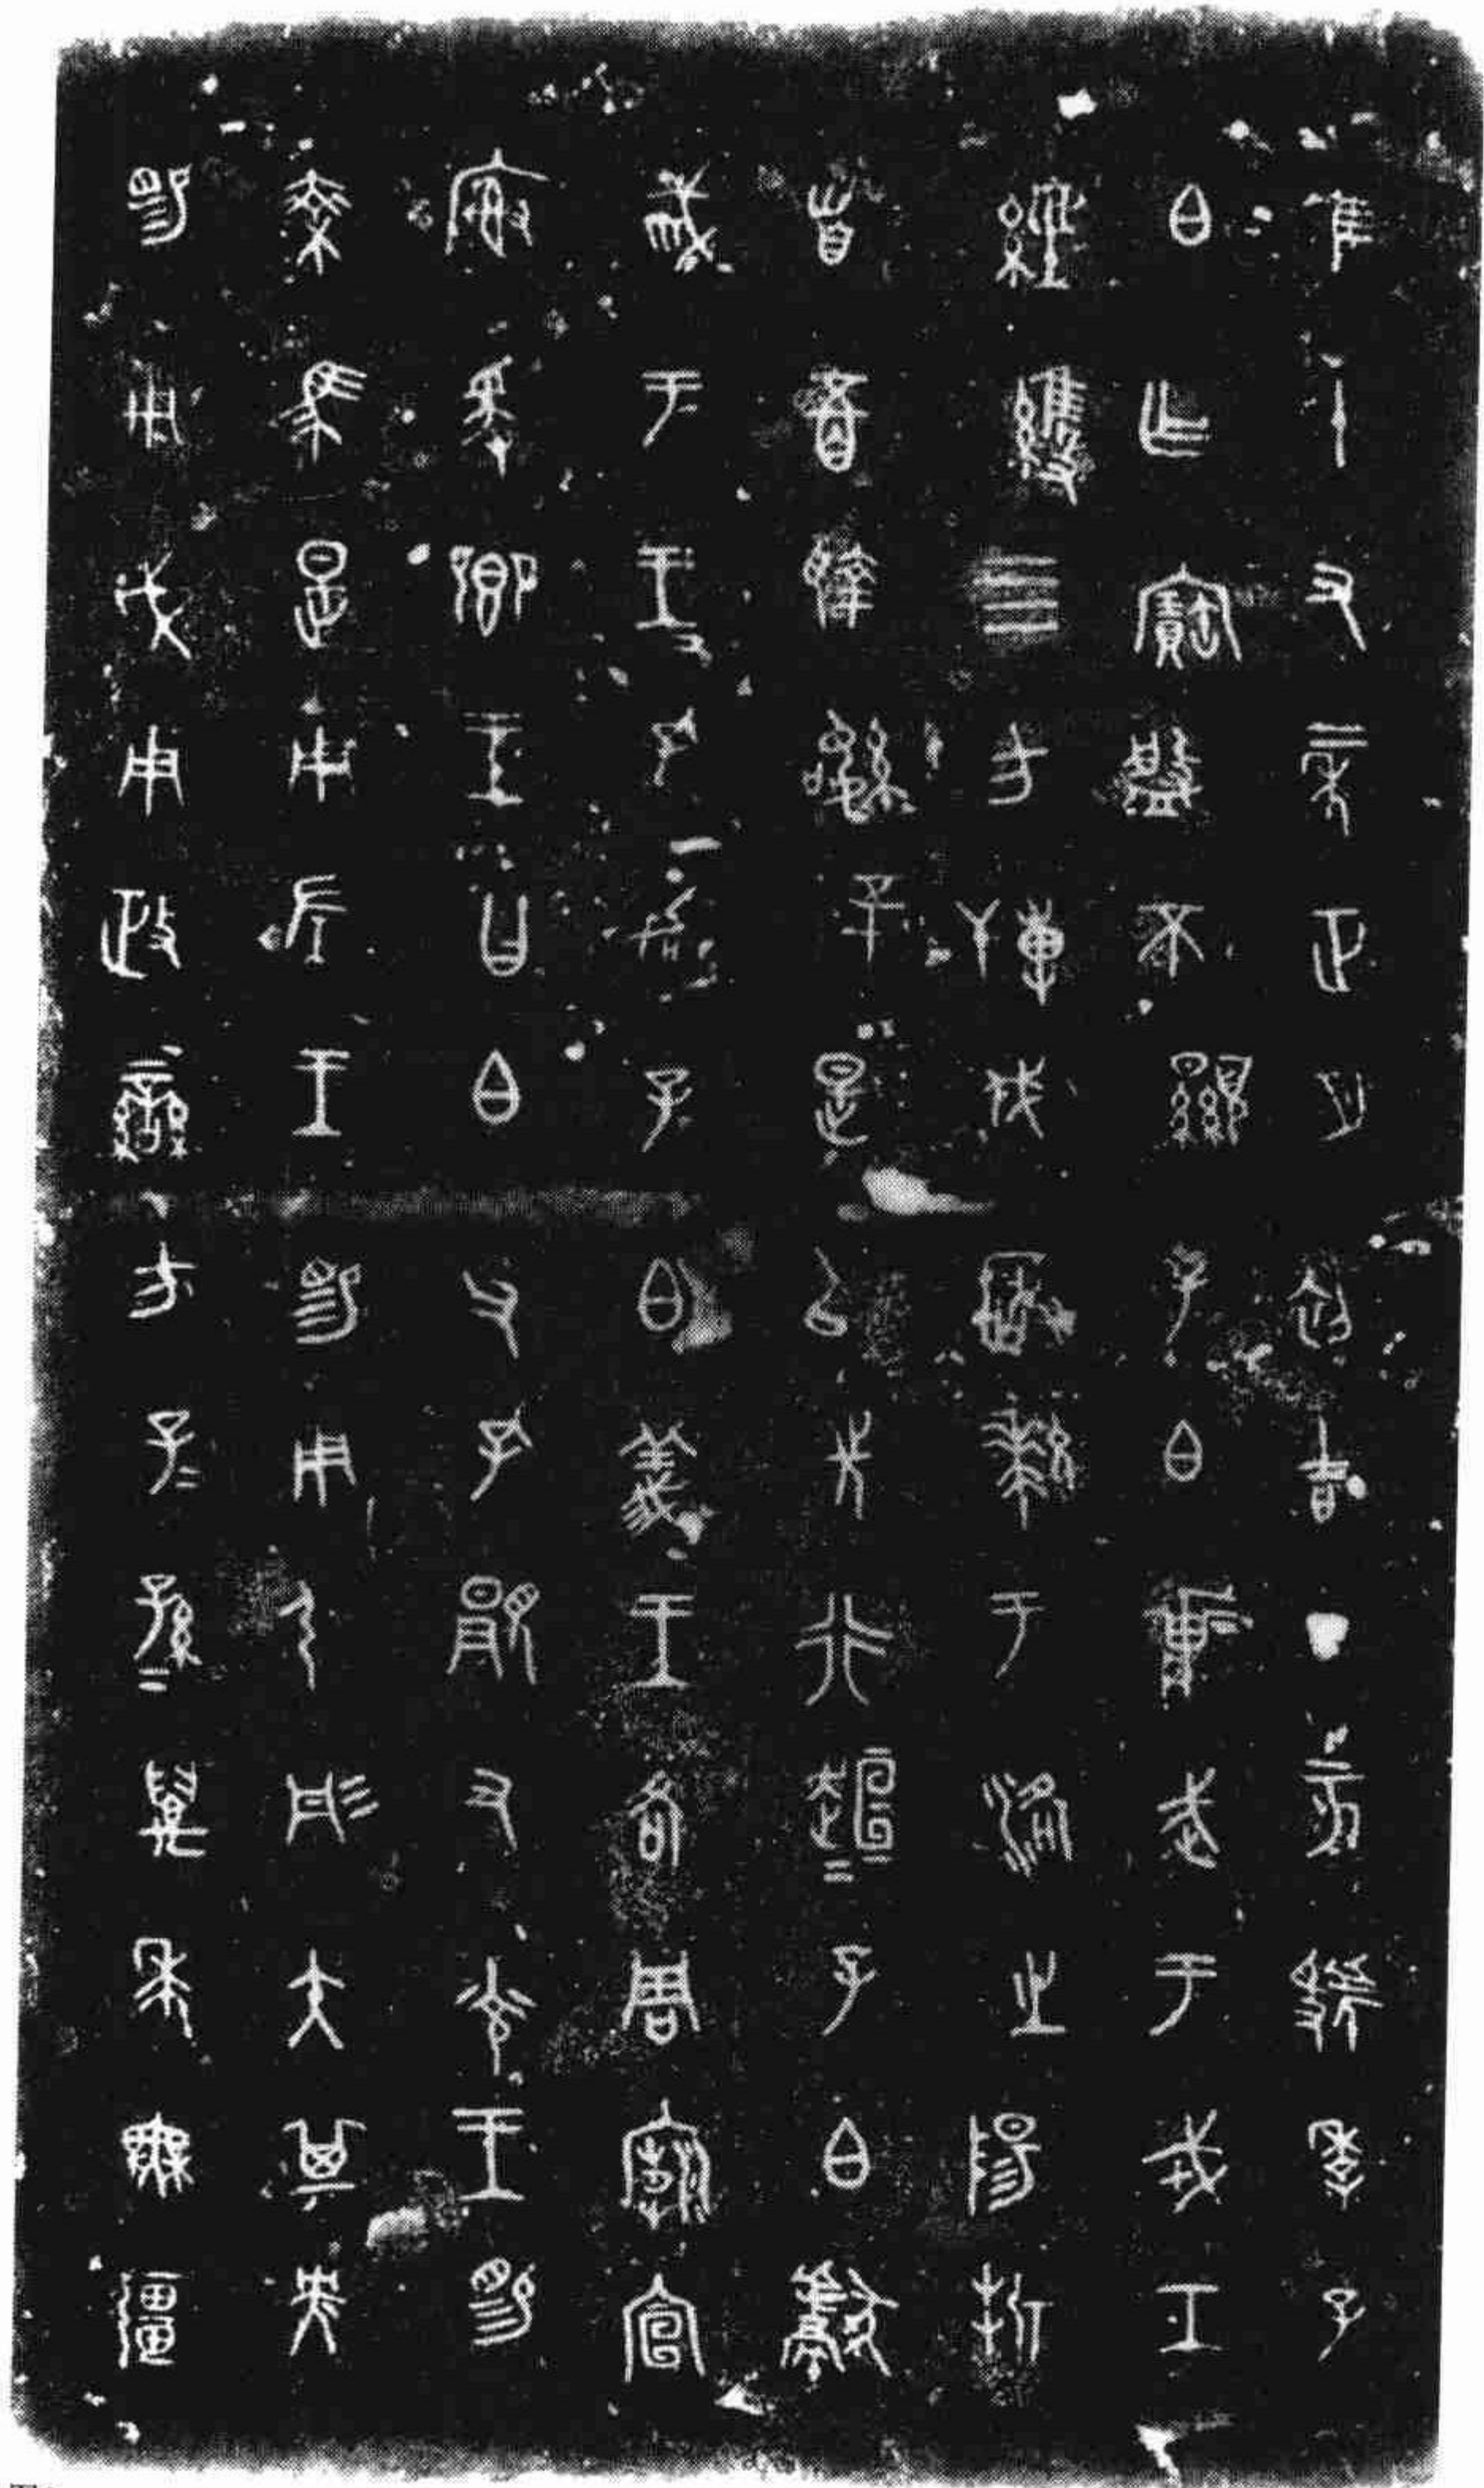 隹十又二年正月初吉丁亥虢季子
白乍寶盤不顯子白壯武于戎工
經維四方搏伐玁狁于洛之陽折
首五百執訊五十是以先行桓桓子白獻
聝于王王孔加子白義王各周廟宣
榭爰鄉王曰白父孔顯又光王睗
乘馬是用左王睗用弓彤矢其央
睗用戉用政蠻方子子孫孫萬年無疆